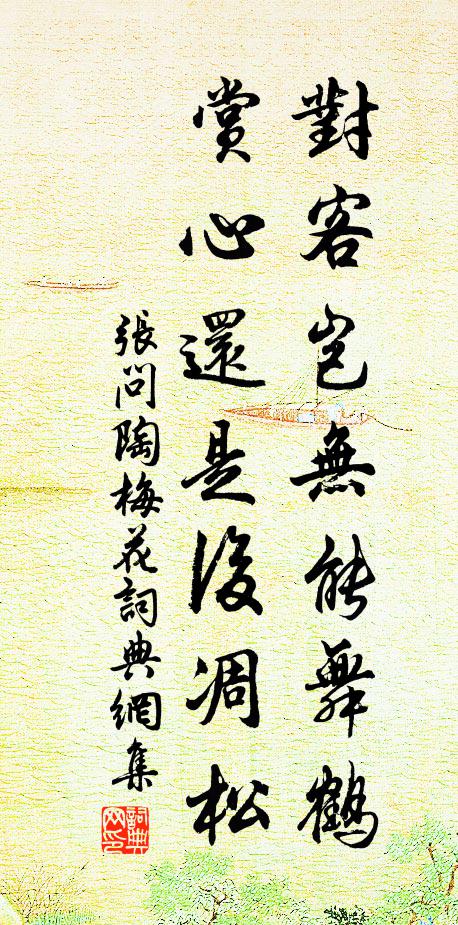 對客豈無能舞鶴
賞心還是後凋松
張問陶梅花詞典網集
詞典網印